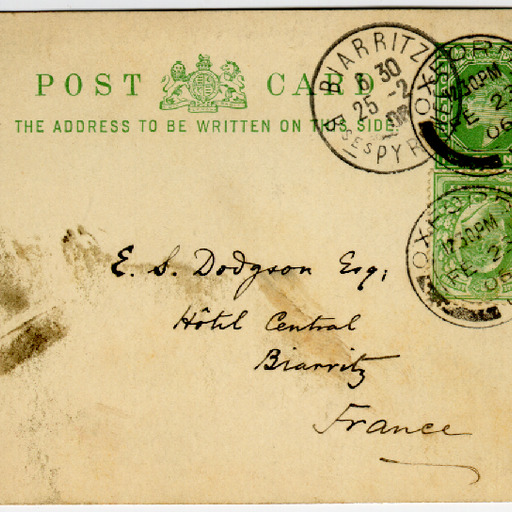 POST CARD
THE ADDRESS TO BE WRITTEN ON THIS SIDE.
BIARRITZ
6 30
25 -2
06
BSES PYR
OXFORD
12.30PM
FE 23
06
OX
12.30PM
FE 23
06
E. S. Dodgson Esq;
Hôtel Central
Biarritz
France